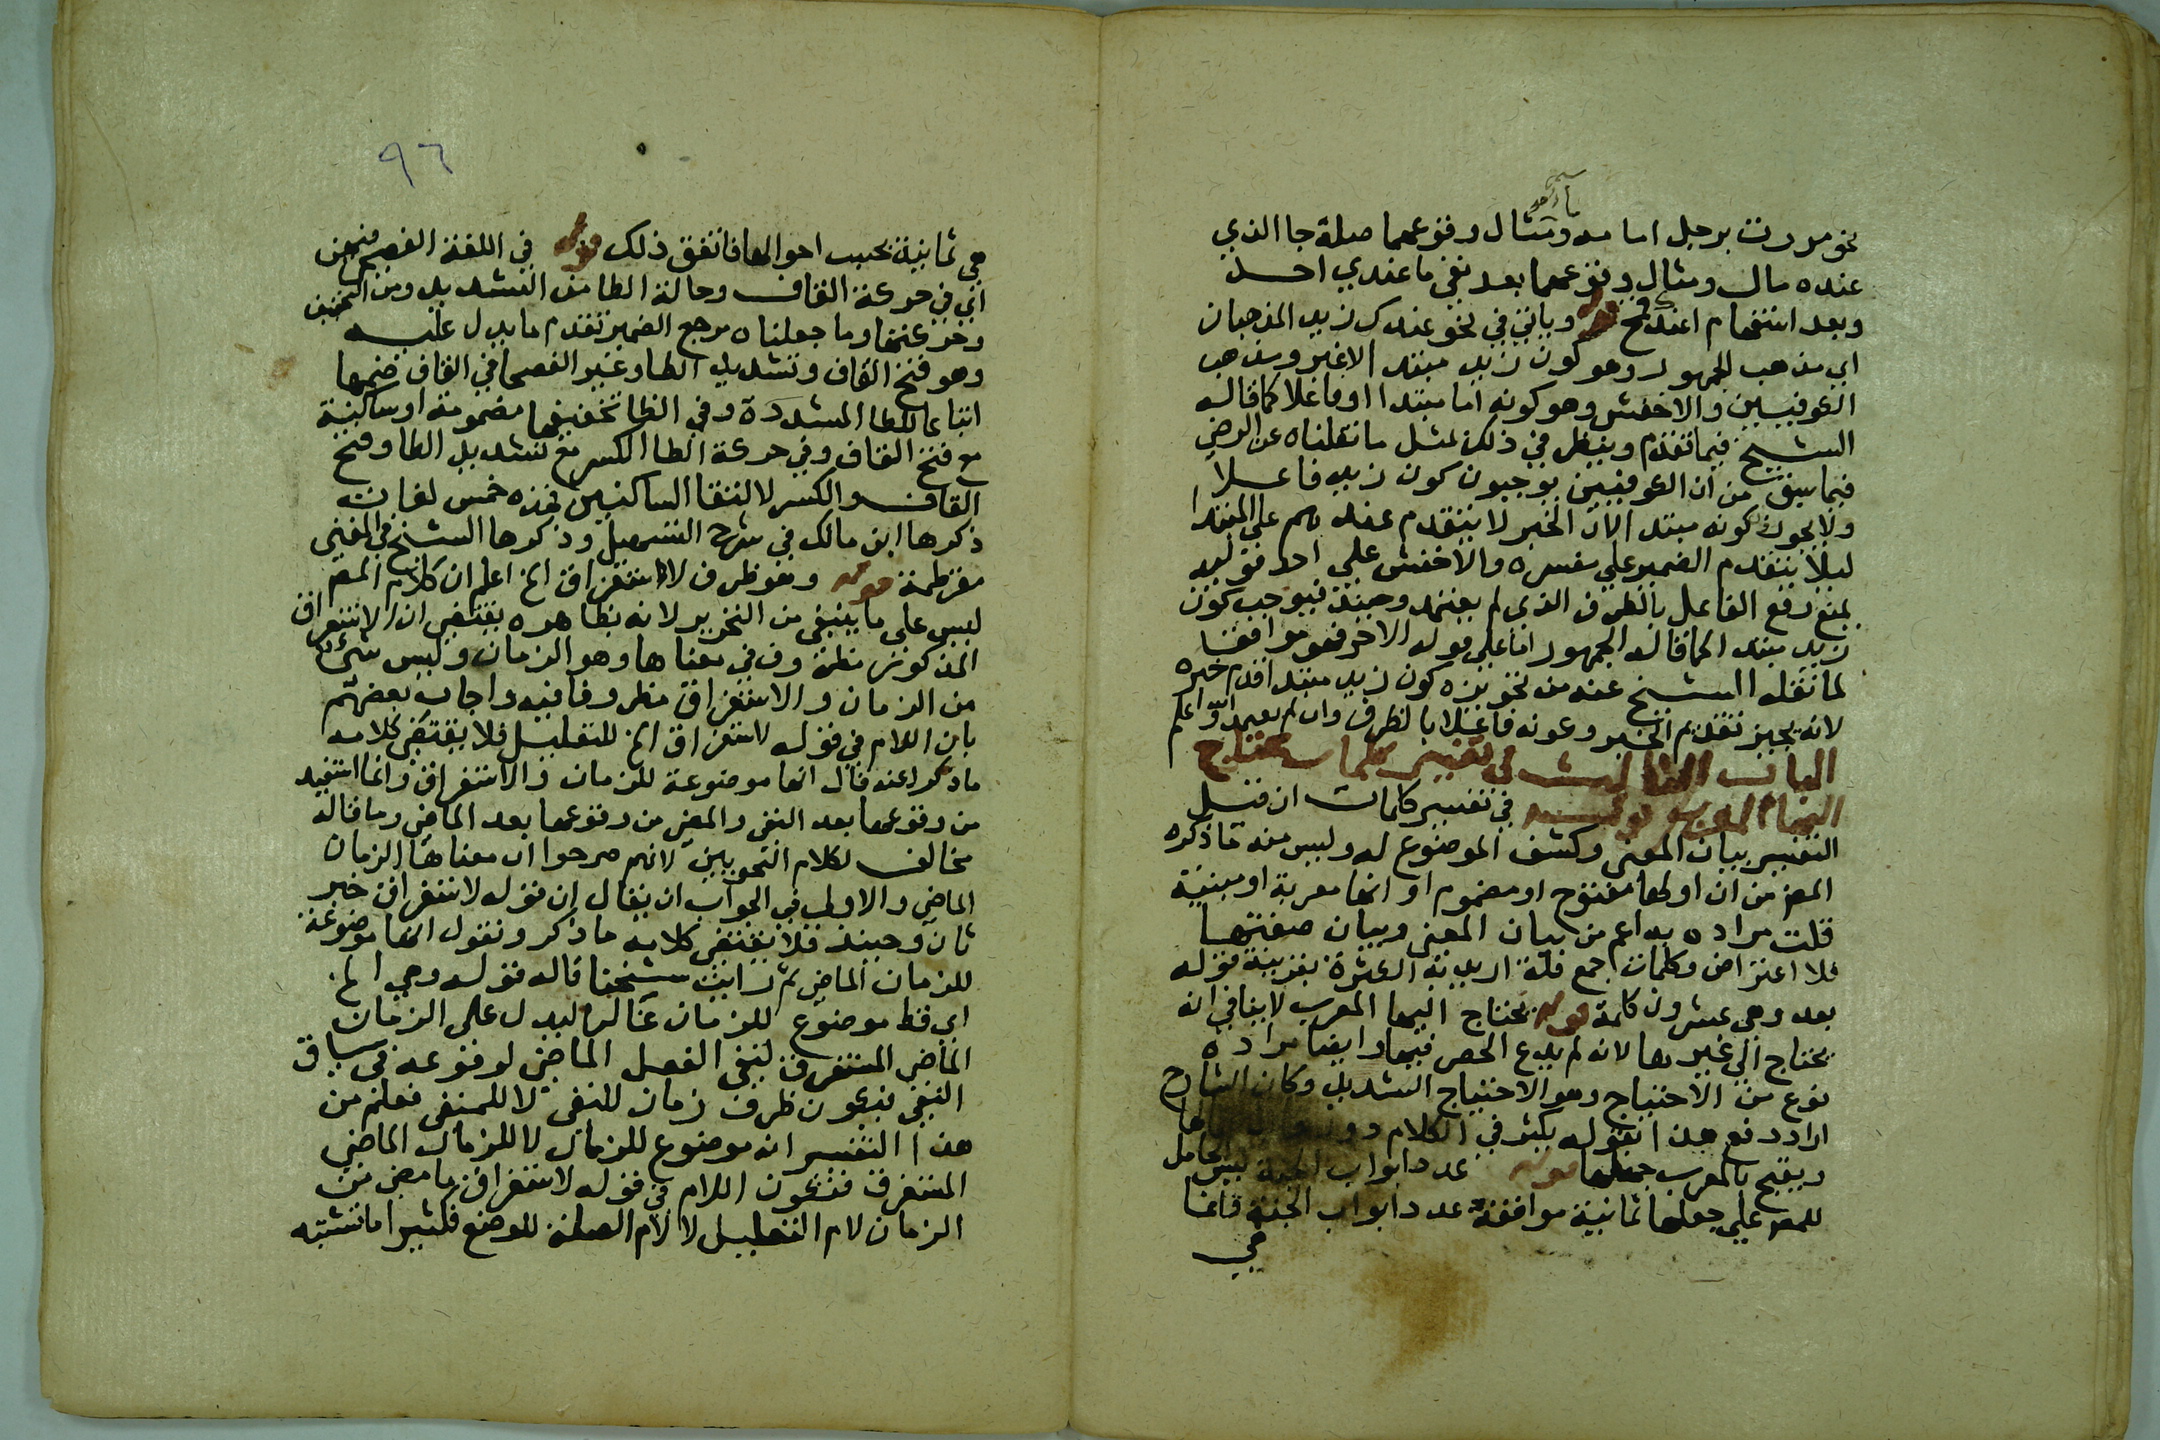 نحو مررت برجل امامه ومثال وقوعهما صلة جا الذي
عنده مال ومثال وقوعهما بعد نفي ما عندي احد
وبعد استفهام اعندك قوله وياتي في نحو عندك زيد المذهبان
اي مذهب الجمهور وهو كون زيد مبتدا لا غير ومذهب
الكوفيين والاخفش وهو كونه اما مبتدا او فاعلا كما قاله
الشيخ فيما تقدم وينظر في ذلك لمثل ما نقلناه عن الرضي
فيما سبق من ان الكوفيين يوجبون كون زيد فاعلا
ولا يجوزون كونه مبتدا لان الخبر لا يتقدم عندهم على المبتدا
ليلا يتقدم الضمير على مفسره والاخفش على احد قوليه
يمنع رفع الفاعل بالظرف الذي لم يعتمد وحينئذ فيوجب كون
زيد مبتدا كما قاله الجمهور اما على قوله الاخر فهو موافق
لما نقله الشيخ عنه من تجويزه كون زيد مبتدا قدم خبره
لانه يجيز تقديم الخبر وكونه فاعلا بالظرف وان لم يعتمد واعلم
الباب الثالث في تفسير كلمات يحتاج
اليها المعرب قوله في تفسير كلمات ان قيل
التفسير بيان المعنى وكشف الموضوع له وليس منه ما ذكره
المص من ان اولها مفتوح او مضموم او انها معربة او مبنية
قلت مراده به اعم من بيان المعنى وبيان صفتها
فلا اعتراض وكلمات جمع قلة اريد به الكثرة بقرينة قوله
بعد وهي عشرون كلمة قوله يحتاج اليها المعرب لا ينافي انه
يحتاج الى غيرها لانه لم يدع الحصر فيها وايضا مراده
نوع من الاحتياج وهو الاحتياج الشديد وكان الشارح
اراد دفع هذا بقوله يكثر في الكلام دورها
ويقبح بالمعرب جهلها قوله عدد ابواب الجنة ليس الحامل
للمص على جعلها ثمانية موافقة عدد ابواب الجنة قائما
هي
٩٦
هي ثمانية بحسب احوالها فاتفق ذلك قوله في اللغة الفصحى فيهن
اي في حركة القاف وحالة الطا من التشديد ومن التخفيف
وحركتها وما جعلناه مرجع الضمير تقدم ما يدل عليه
وهو فتح القاف وتشديد الطا وغير الفصحا في القاف ضمها
اتباعا للطا المشددة وفي الطا تخفيفها مضمومة او ساكنة
مع فتح القاف وفي حركة الطا الكسر مع تشديد الطا وفتح
القاف والكسر لالتقا الساكنين فهذه خمس لغات
ذكرها ابن مالك في شرح التسهيل وذكرها الشيخ في المغني
مفرطمة قوله وهو ظرف لاستغراق الخ اعلم ان كلام المص
ليس على ما ينبغي من التحرير لانه بظاهره يقتضي ان الاستغراق
المذكور مظروف في معناها وهو الزمان وليس شئ
من الزمان والاستغراق مظروفا فيه واجاب بعضهم
بان اللام في قوله لاستغراق الخ للتعليل فلا يقتضي كلامه
ما ذكر لعنه قال انها موضوعة للزمان والاستغراق وانما استفيد
من وقوعها بعد النفي والمضي من وقوعها بعد الماضي وما قاله
مخالف لكلام النحويين لانهم صرحوا ان معناها الزمان
الماضي والاولى في الجواب ان يقال ان قوله لاستغراق خبر
ثان وحينئذ فلا يقتضي كلامه ما ذكر ونقول انها موضوعة
للزمان الماضي ثم رايت شيخنا قاله قوله وهي الخ
اي قط موضوع للزمان غالبا ليدل على الزمان
الماضي المستغرق لنفي الفعل الماضي لوقوعه في سياق
النفي فيكون ظرف زمان للنفي لا للمنفي فعلم من
هذا التفسير انه موضوع للزمان لا للزمان الماضي
المستغرق فتكون اللام في قوله لاستغراق ما مضى من
الزمان لام التعليل لا لام الصلة للوضع فكثيرا ما تشتبه